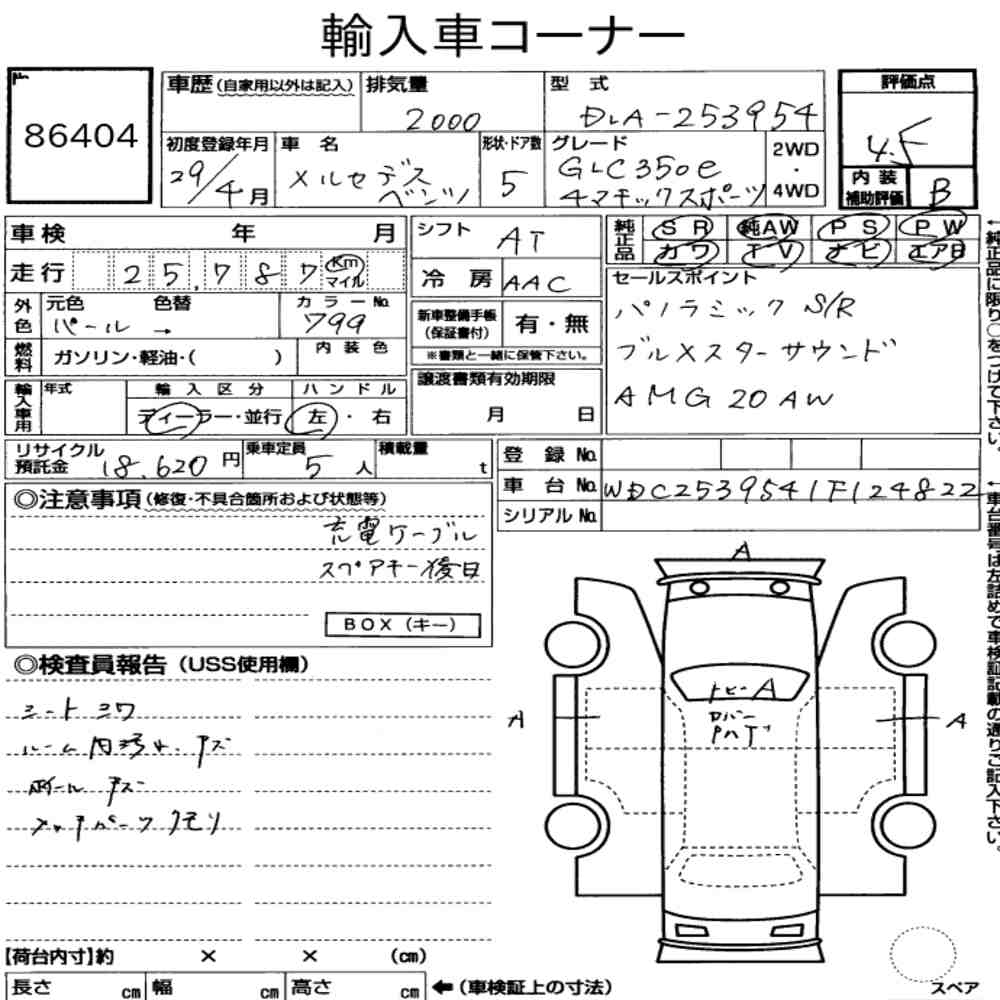 輸入車コーナー
86404
車歴(自家用以外は記入)
排気量
2000
型 式
DLA-253954
評価点
4.5
初度登録年月
29/4月
車 名
メルセデス
ベンツ
形状・ドア数
5
グレード
GLC350e
4マチックスポーツ
2WD
・
4WD
内装
補助評価
B
車検 年 月
走行 25,787 Km
マイル
シフト AT
冷 房 AAC
純正品 SR 純AW PS PW
カワ TV ナビ エアB
外色 元色 色替 カラーNo.
パール → 799
新車整備手帳
(保証書付)
有・無
※書類と一緒に保管下さい。
セールスポイント
パノラミック S/R
ブルメスターサウンド
AMG 20AW
燃料 ガソリン・軽油・( )
内装色
輸入車用 年式 輸入区分 ハンドル
ディーラー・並行 左・右
譲渡書類有効期限
月 日
リサイクル
預託金 18,620円
乗車定員 5人
積載量 t
登 録 No.
車 台 No. WDC2539541F124822
シリアルNo.
◎注意事項(修復・不具合箇所および状態等)
充電ケーブル
スペアキー後日
BOX(キー)
◎検査員報告(USS使用欄)
シートシワ
ルーム内汚れ、キズ
ホイールキズ
メッキパーツクモリ
A
トビーA
A
A
【荷台内寸】約 × × (cm)
長さ cm 幅 cm 高さ cm ←(車検証上の寸法)
スペア
←純正品に限り○をつけて下さい。
←車台番号は左詰めで車検証記載の通りご記入下さい。